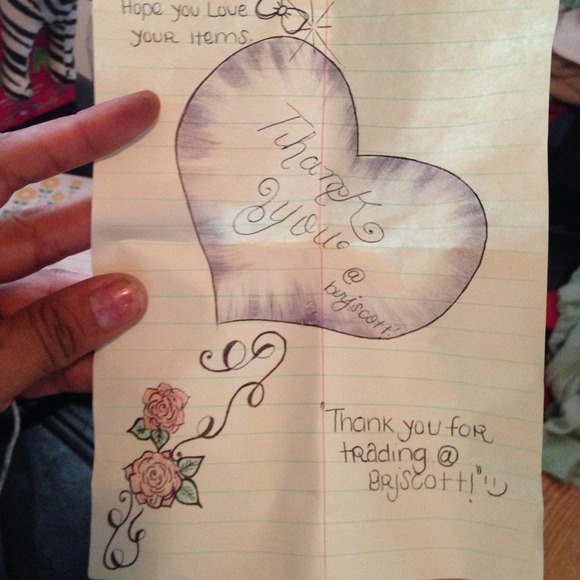 Hope you Love
your items.
Thank
you
@
brjscott!
"Thank you for
trading @
Brjscott!" :)